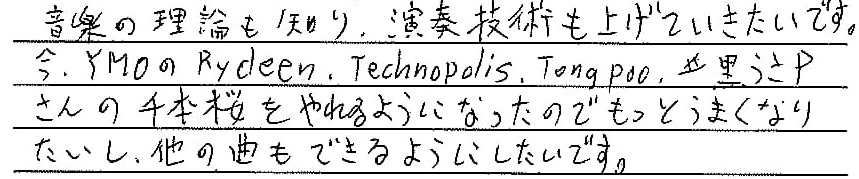 音楽の理論も知り、演奏技術も上げていきたいです。
今、YMOのRydeen、Technopolis、Tong poo、黒うさP
さんの千本桜をやれるようになったのでもっとうまくなり
たいし、他の曲もできるようにしたいです。